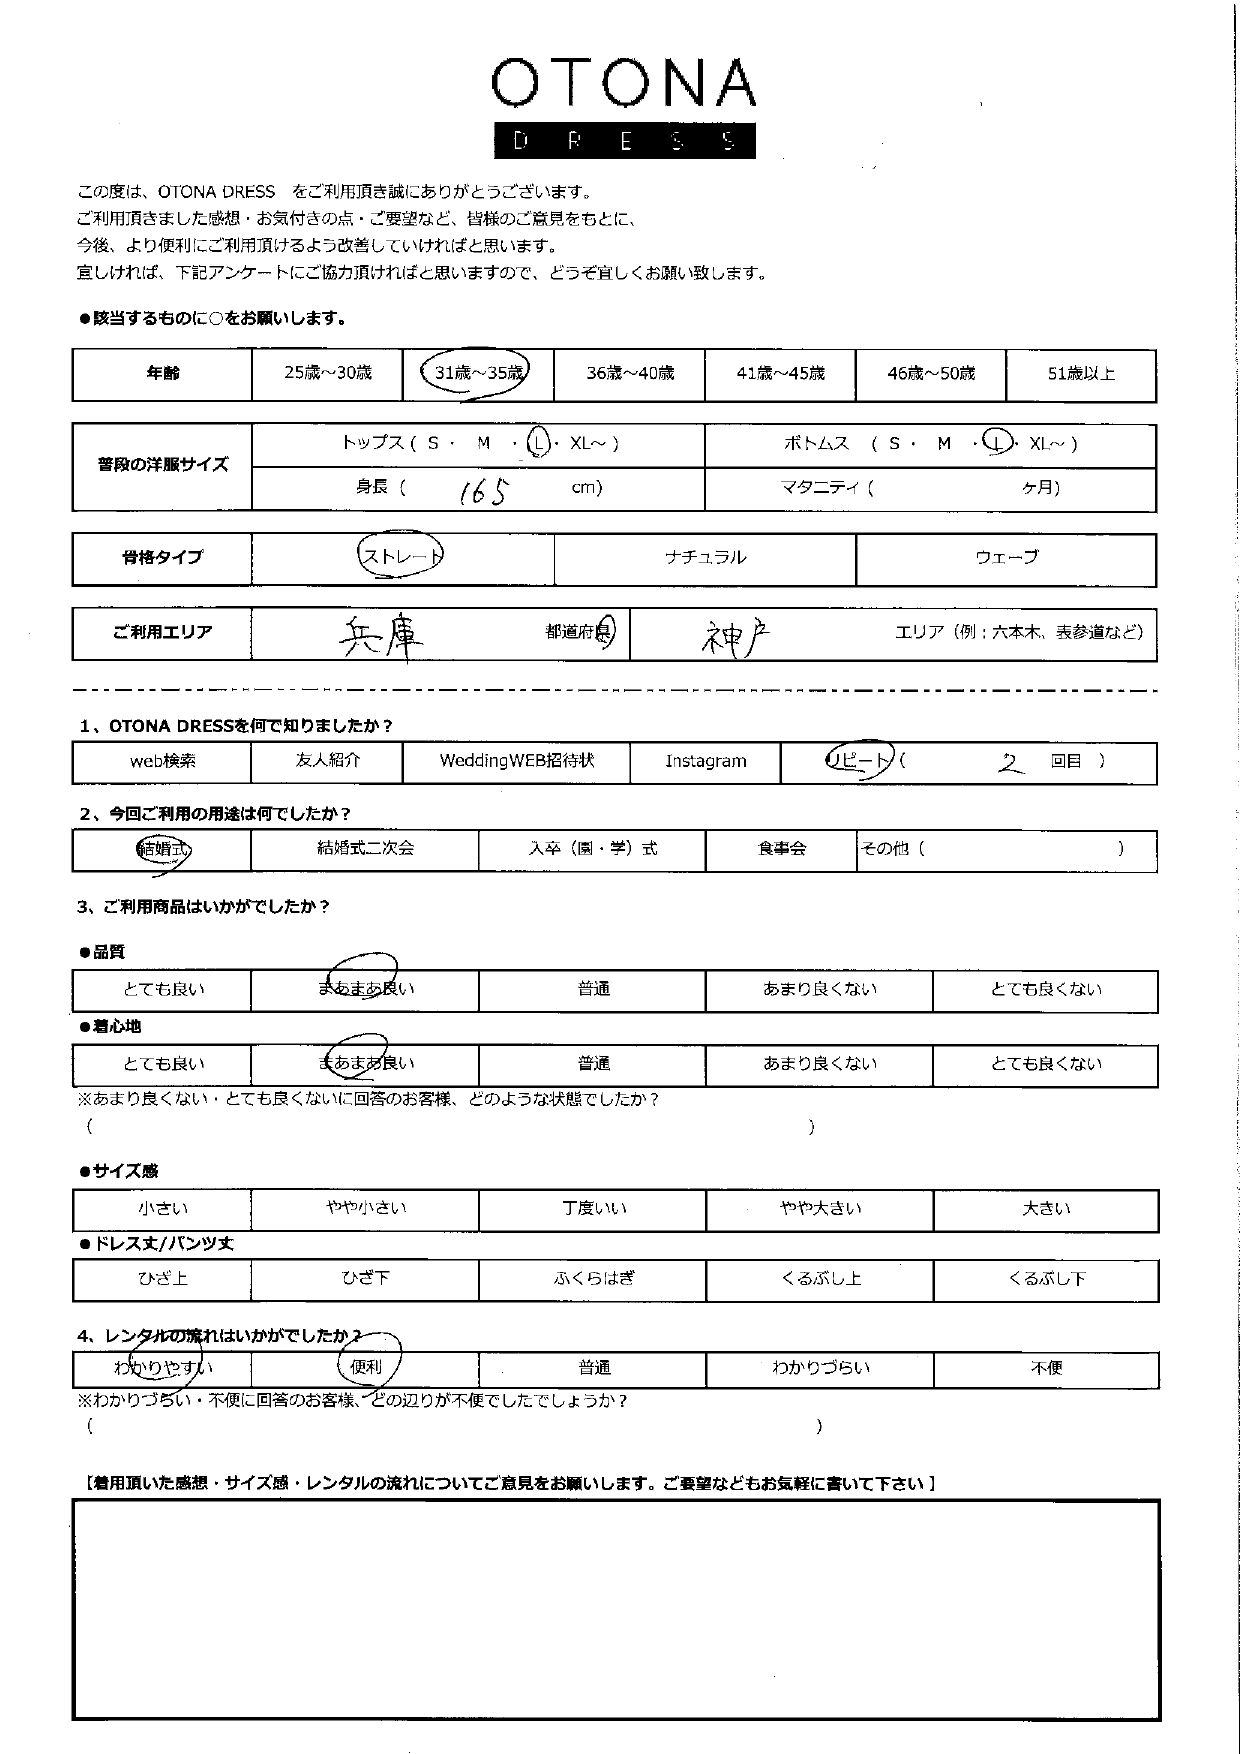 OTONA
DRESS
この度は、OTONA DRESS　をご利用頂き誠にありがとうございます。
ご利用頂きました感想・お気付きの点・ご要望など、皆様のご意見をもとに、
今後、より便利にご利用頂けるよう改善していければと思います。
宜しければ、下記アンケートにご協力頂ければと思いますので、どうぞ宜しくお願い致します。
●該当するものに○をお願いします。
年齢 25歳～30歳 31歳～35歳 36歳～40歳 41歳～45歳 46歳～50歳 51歳以上
普段の洋服サイズ トップス ( S ・ M ・ L ・ XL～ ) ボトムス ( S ・ M ・ L ・ XL～ )
身長 ( 165 cm) マタニティ ( ヶ月)
骨格タイプ ストレート ナチュラル ウェーブ
ご利用エリア 兵庫 都道府県 神戸 エリア（例：六本木、表参道など）
1、OTONA DRESSを何で知りましたか？
web検索 友人紹介 WeddingWEB招待状 Instagram リピート ( 2 回目 )
2、今回ご利用の用途は何でしたか？
結婚式 結婚式二次会 入卒（園・学）式 食事会 その他 ( )
3、ご利用商品はいかがでしたか？
●品質
とても良い まあまあ良い 普通 あまり良くない とても良くない
●着心地
とても良い まあまあ良い 普通 あまり良くない とても良くない
※あまり良くない・とても良くないに回答のお客様、どのような状態でしたか？
( )
●サイズ感
小さい やや小さい 丁度いい やや大きい 大きい
●ドレス丈/パンツ丈
ひざ上 ひざ下 ふくらはぎ くるぶし上 くるぶし下
4、レンタルの流れはいかがでしたか？
わかりやすい 便利 普通 わかりづらい 不便
※わかりづらい・不便に回答のお客様、どの辺りが不便でしたでしょうか？
( )
[着用頂いた感想・サイズ感・レンタルの流れについてご意見をお願いします。ご要望などもお気軽に書いて下さい ]